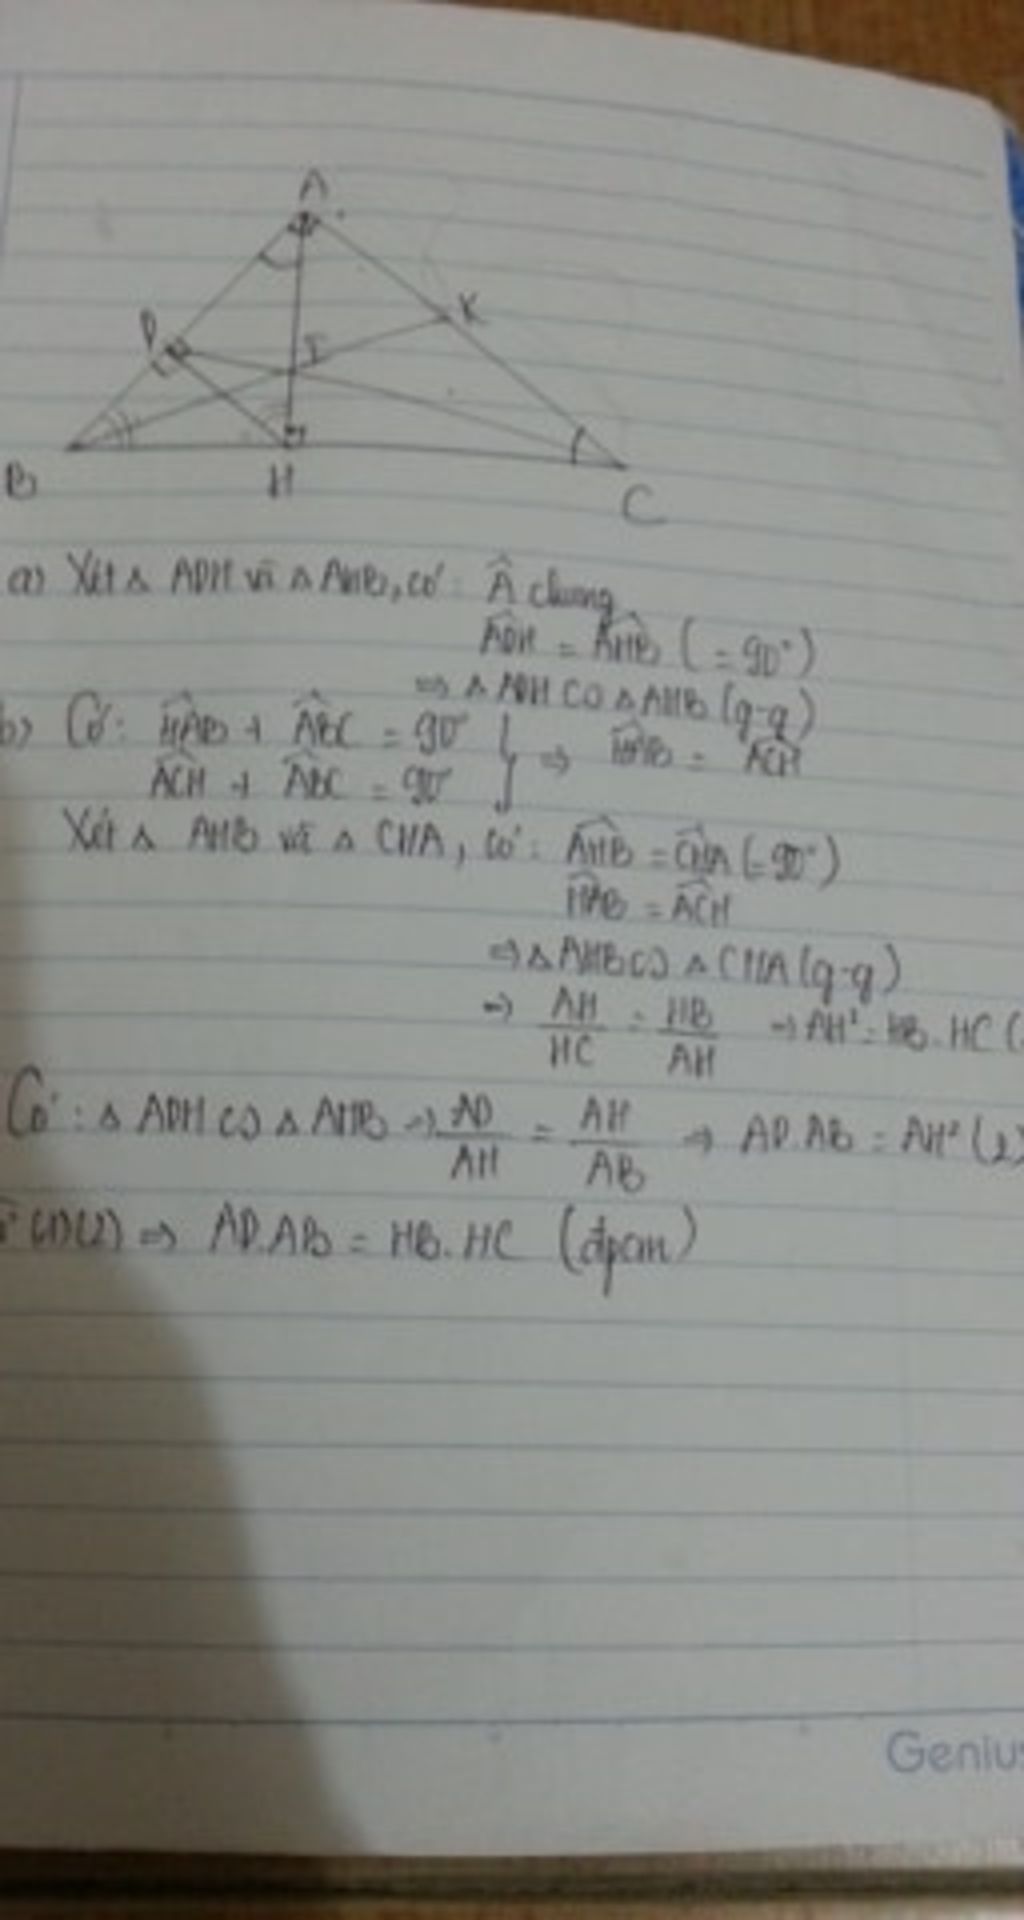 A
D
K
I
B
H
C
a) Xét Δ ADH và Δ AHB, có: Â chung
ADH = AHB (= 90°)
=> Δ ADH ∽ Δ AHB (g-g)
b) Có: HAB + ABC = 90° } => HAB = ACH
ACH + ABC = 90°
Xét Δ AHB và Δ CHA, có: AHB = CHA (= 90°)
HAB = ACH
=> Δ AHB ∽ Δ CHA (g-g)
=> AH/HC = HB/AH => AH² = HB.HC (
Có: Δ ADH ∽ Δ AHB => AD/AH = AH/AB => AD.AB = AH² (2)
(1)(2) => AD.AB = HB.HC (đpcm)
Genius